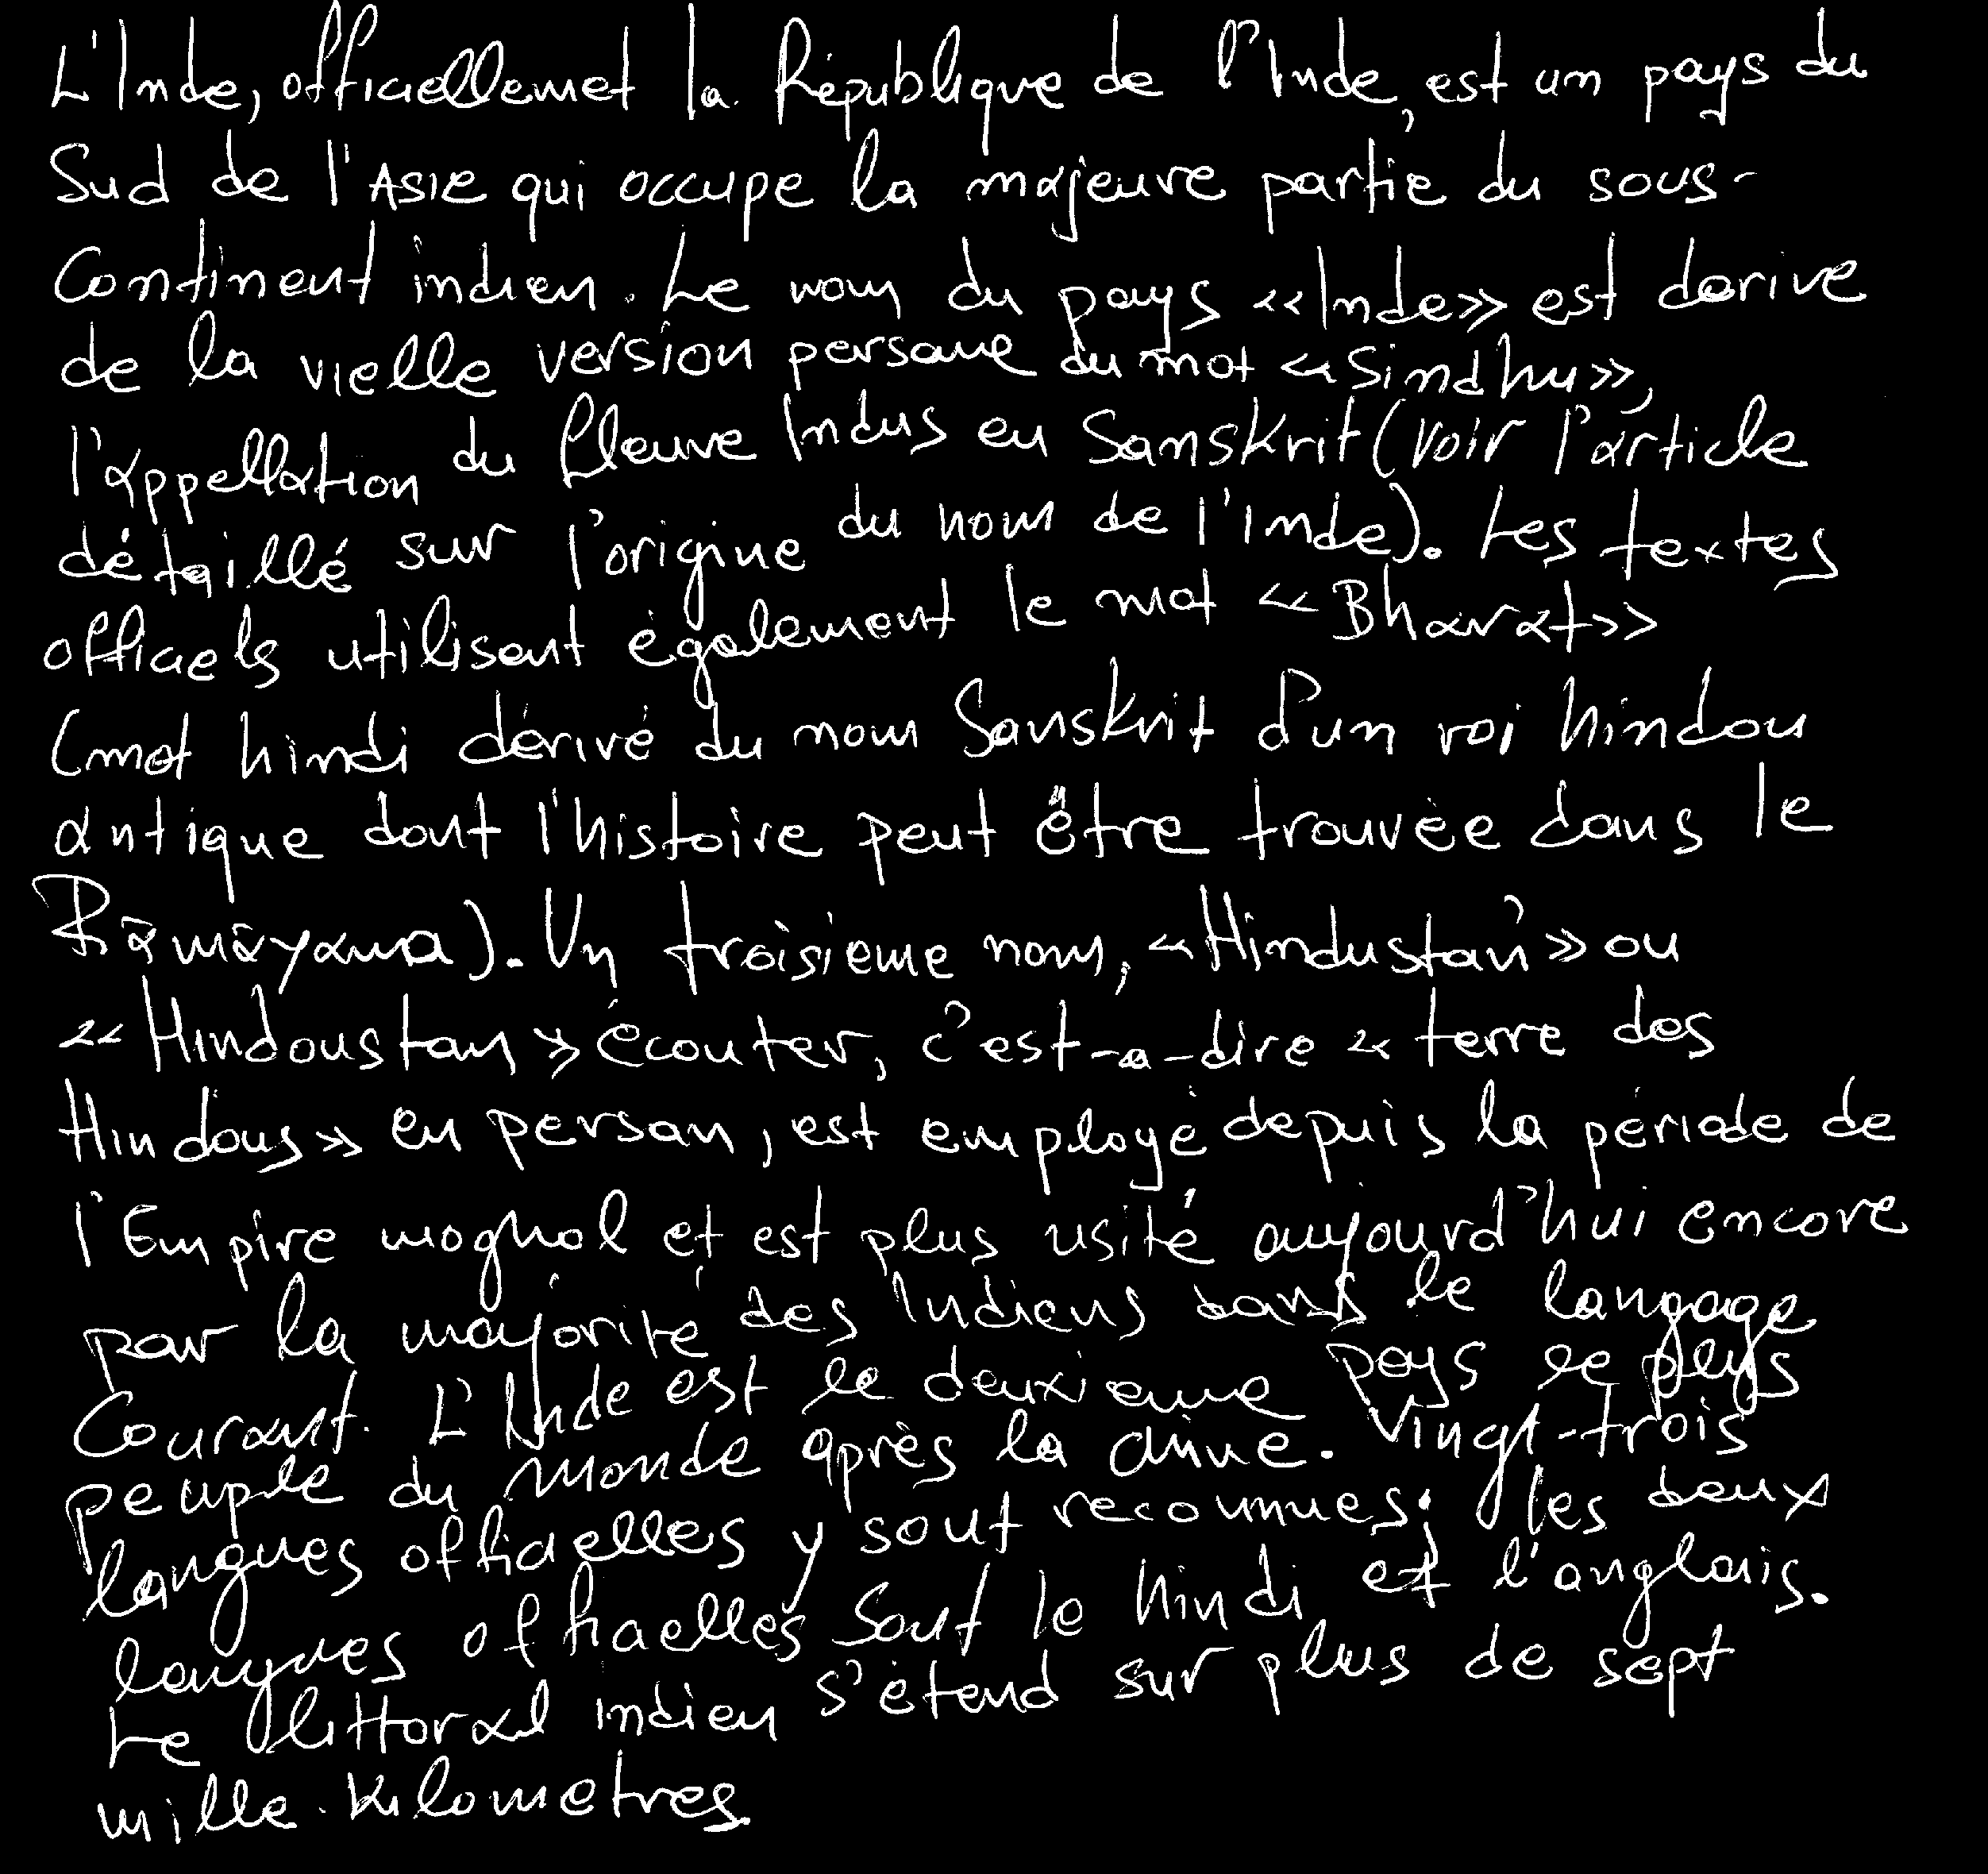 L'Inde, officiellemet la République de l'Inde, est un pays du
Sud de l'Asie qui occupe la majeure partie du sous-
Continent indien. Le nom du pays «Inde» est dérive
de la vielle version persane du mot «Sindhu»,
l'appellation du fleuve Indus en Sanskrit (voir l'article
détaillé sur l'origine du nom de l'Inde). Les textes
officiels utilisent également le mot «Bharat»
(mot hindi dérivé du nom Sanskrit d'un roi hindou
antique dont l'histoire peut être trouvée dans le
Rāmāyana). Un troisieme nom, «Hindustan» ou
«Hindoustan» écouter, c'est-a-dire «terre des
Hindous» en persan, est employé depuis la période de
l'Empire moghol et est plus usité aujourd'hui encore
par la majorité des Indiens dans le langage
Courant. L'Inde est le deuxieme pays le plus
peuple du monde après la chine. Vingt-trois
langues officielles y sont reconnues; les deux
langues officielles sont le hindi et l'anglais.
Le littoral indien s'étend sur plus de sept
mille kilometres.